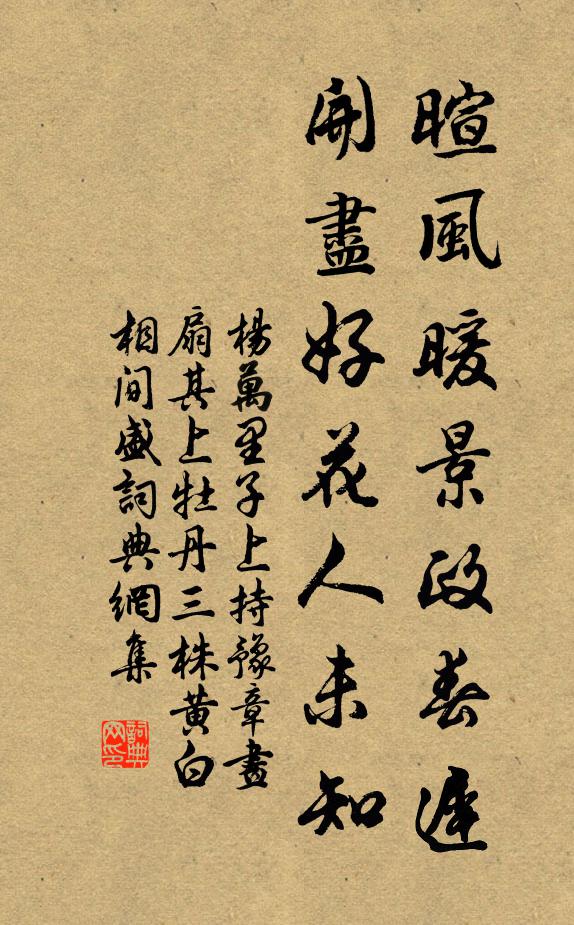 暄風暖景政春遲
開盡好花人未知
楊萬里子上持豫章畫
扇其上牡丹三株黄白
相间盛詞典網集
詞典網印